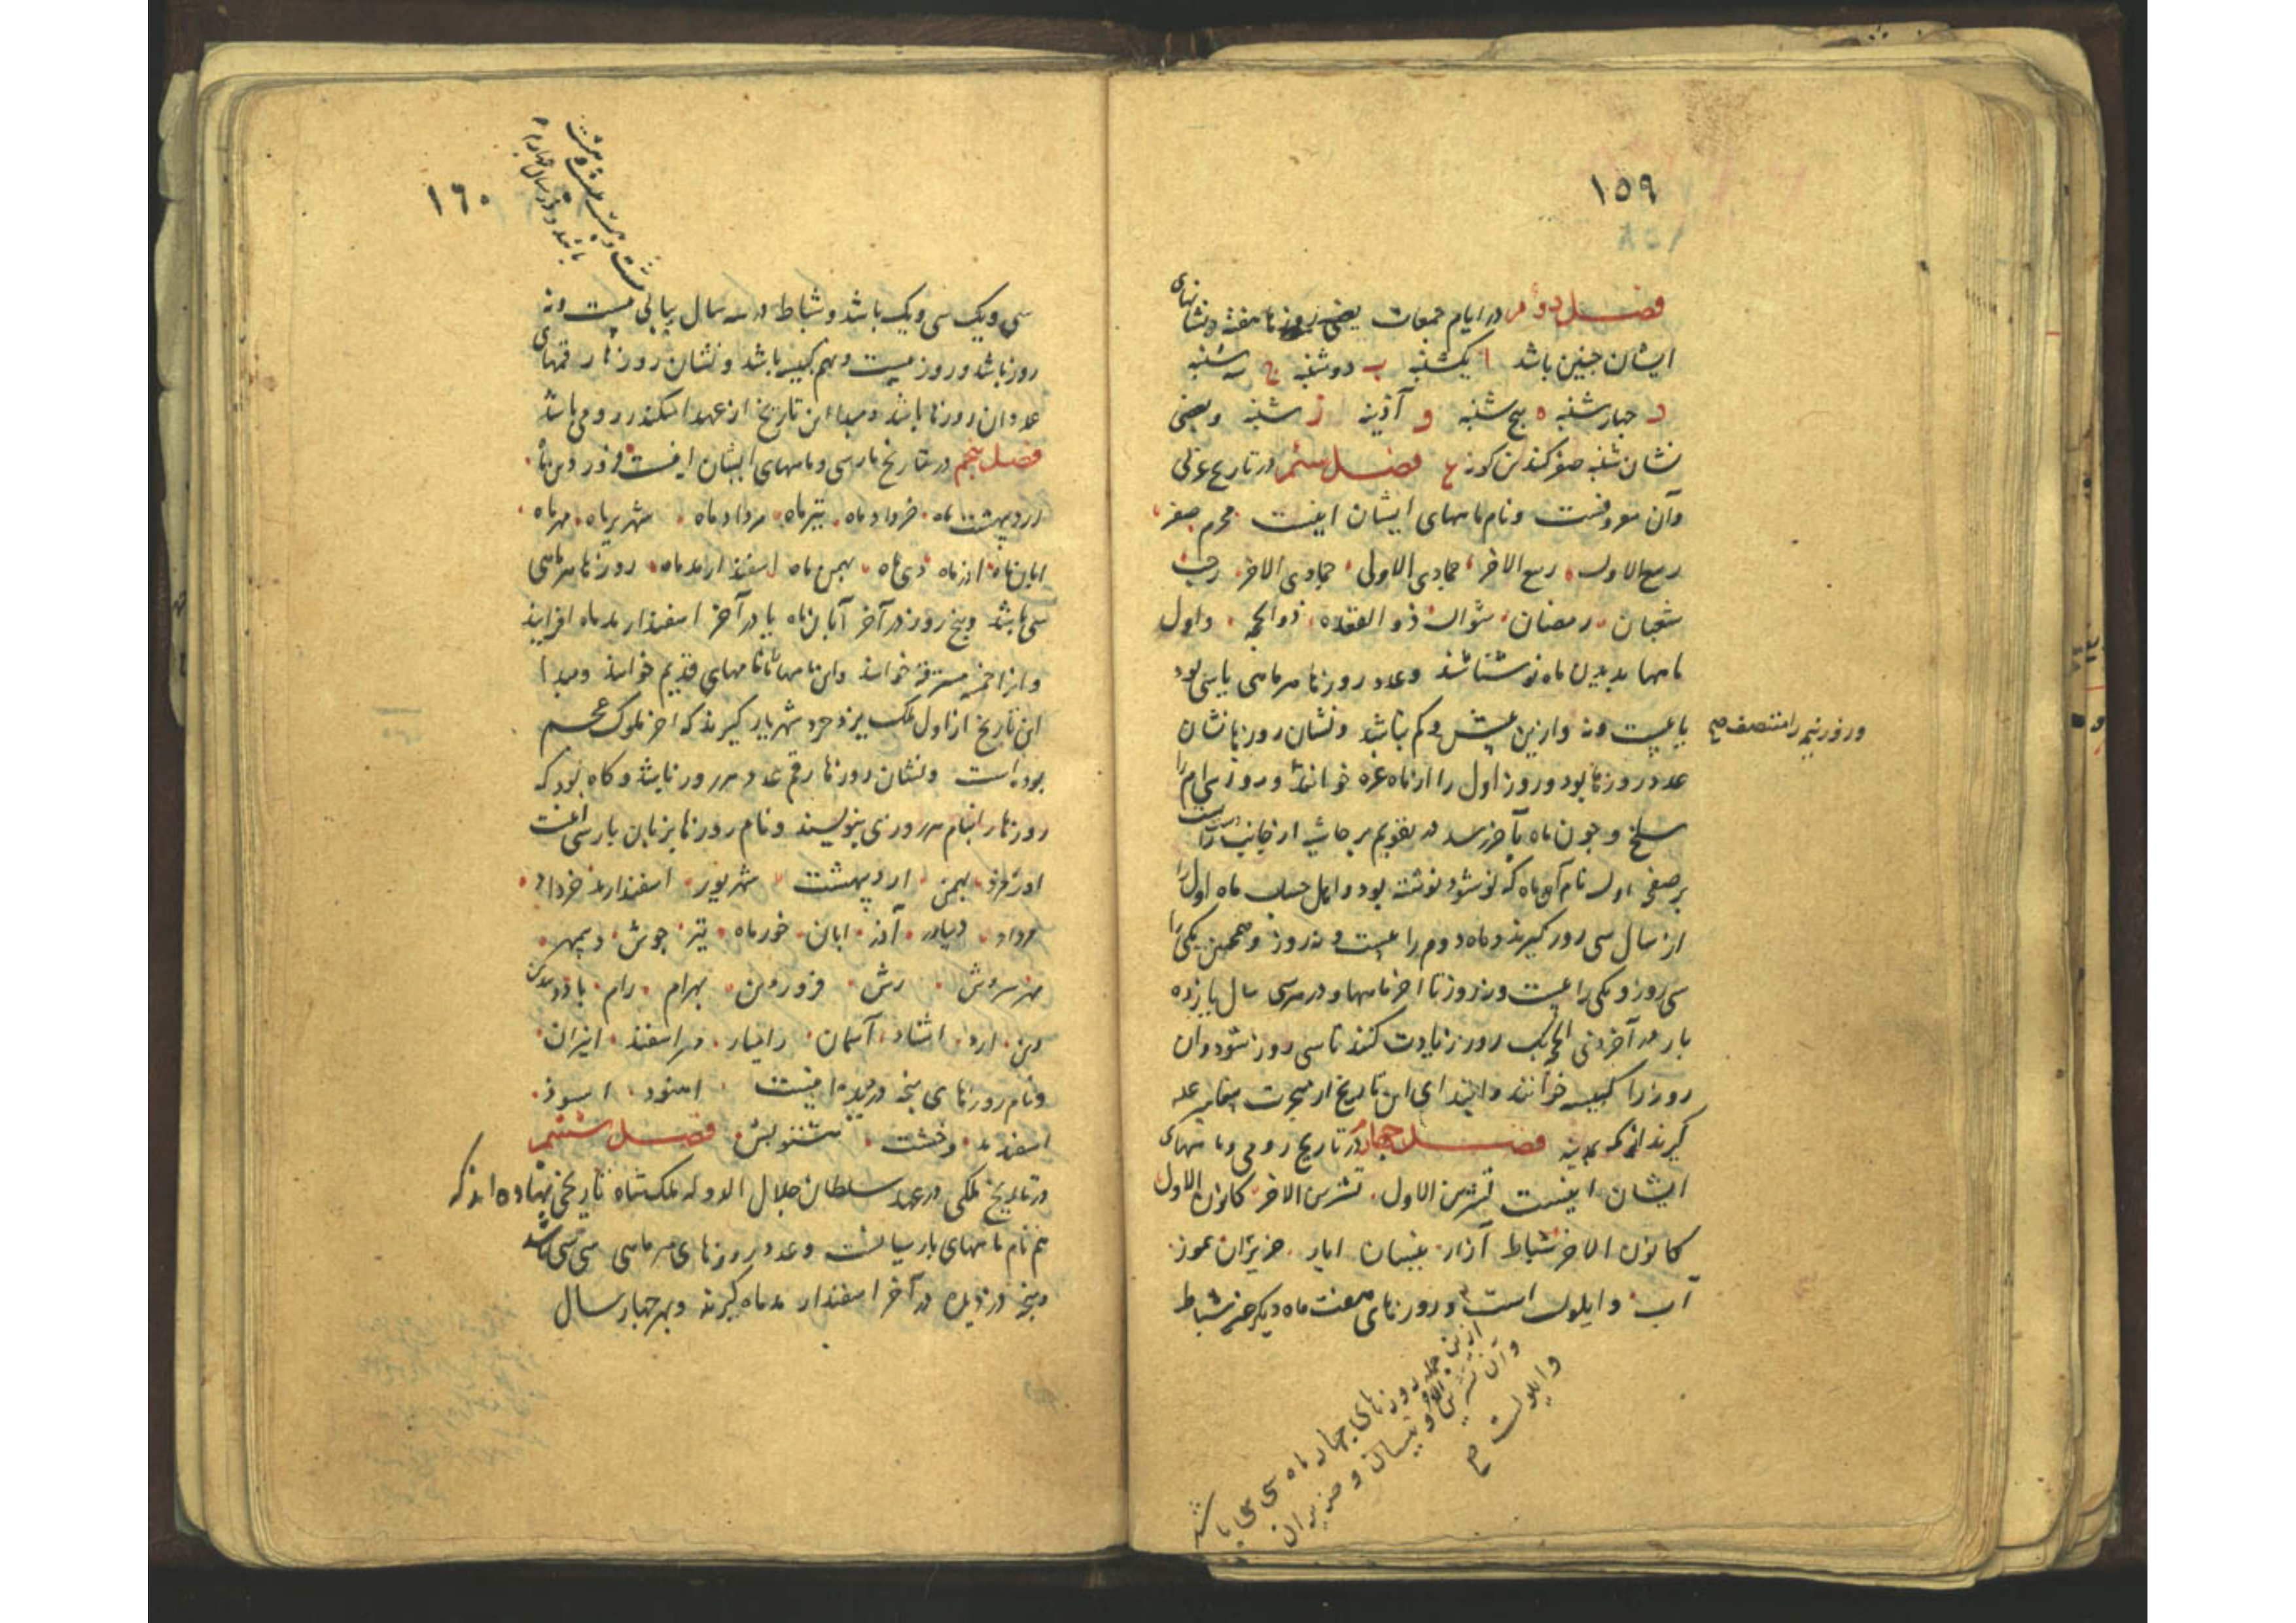 ١٥٩
فصل دوم در ایام جمعات یعنی روزها هفته و نشانهای
ایشان چنین باشد ا یکشنبه ب دوشنبه ج سه شنبه
د چهارشنبه ه پنج شنبه و آذینه ز شنبه و بعضی
نشان شنبه صفر کنند فصل سئم در تاریخ عربی
وآن معروفست ونام ماههای ایشان اینست محرم صفر
ربیع الاول ربیع الاخر جمادی الاولی جمادی الاخر رجب
شعبان رمضان شوال ذو القعده ذوالحجه واول
ماهها بدیدن ماه نو شناسند وعدد روزها هر ماهی یا سی بود
یا بیست ونه وازین بیش وکم نباشد ونشان روزها نشان
ورز نیم را منتصف صح
عدد روزها بود وروز اول را از ماه غره خوانند وروز سی ام را
سلخ وچون ماه بآخر رسد در تقویم بر حاشیه از جانب راست
بر صفحه اول نام آن ماه که نو شود نوشته بود واهل حساب ماه اول را
از سال سی روز گیرند وماه دوم را بیست ونه روز وهمچنین یکی را
سی روز ویکی را بیست ونه روز تا آخر ماهها ودر هر سی سال یازده
بار در آخر ذی الحجه یک روز زیادت کنند تا سی روز شود وآن
روز را کبیسه خوانند وابتدای این تاریخ از هجرت پیغامبر علیه
گیرند از مکه بمدینه فصل چهارم در تاریخ رومی وماههای
ایشان اینست تشرین الاول تشرین الاخر کانون الاول
کانون الاخر شباط آذار نیسان ایار حزیران تموز
آب وایلول است وروزهای هفت ماه دیگر جز شباط
ازین جمله روزهای چهار ماه سی سی باشد
وآن تشرین الاخر ونیسان وحزیران
وایلولست صح
١٦٠
بیست وهشت بیست وهشت
باشد ودر سال چهارم
سی ویک سی ویک باشد وشباط در سه سال پیاپی بیست ونه
روز باشد وروز بیست ونهم کبیسه باشد ونشان روزها رقمهای
عدد آن روزها باشد ومبدا این تاریخ از عهد اسکندر رومی باشد
فصل پنجم در تاریخ پارسی وماههای ایشان اینست فروردین ماه
اردیبهشت ماه خرداد ماه تیر ماه مرداد ماه شهریر ماه مهر ماه
ابان ماه اذر ماه دی ماه بهمن ماه اسفندارمد ماه روزها هر ماهی
سی باشد وپنج روز در آخر آبان ماه یا در آخر اسفندارمد ماه افزایند
وانرا خمسه مسترقه خوانند واین ماهها را ماههای قدیم خوانند ومبدا
این تاریخ از اول ملک یزدجرد شهریار گیرند که آخر ملوک عجم
بوده است ونشان روزها رقم عدد هر روز باشد وگاه بود که
روزها را بنام هر روزی بنویسند ونام روزها بزبان پارسی اینست
اورمزد بهمن اردیبهشت شهریور اسفندارمد خرداد
مرداد دیبادر آذر ابان خور ماه تیر جوش دیبمهر
مهر سروش رش فروردین بهرام رام باد دیبدین
دین ارد اشتاد آسمان رامیاد مراسفند انیران
ونام روزهای پنجه دزدیده اینست اهنود اسنود
اسفندمد وهشت هشتویش فصل ششم
در تاریخ ملکی در عهد سلطان جلال الدوله ملکشاه تاریخی نهاده اند که
هم نام ماههای پارسیانست وعدد روزهای هر ماهی سی سی باشد
وپنجه دزدیده در آخر اسفندارمد ماه گیرند وبهر چهار سال